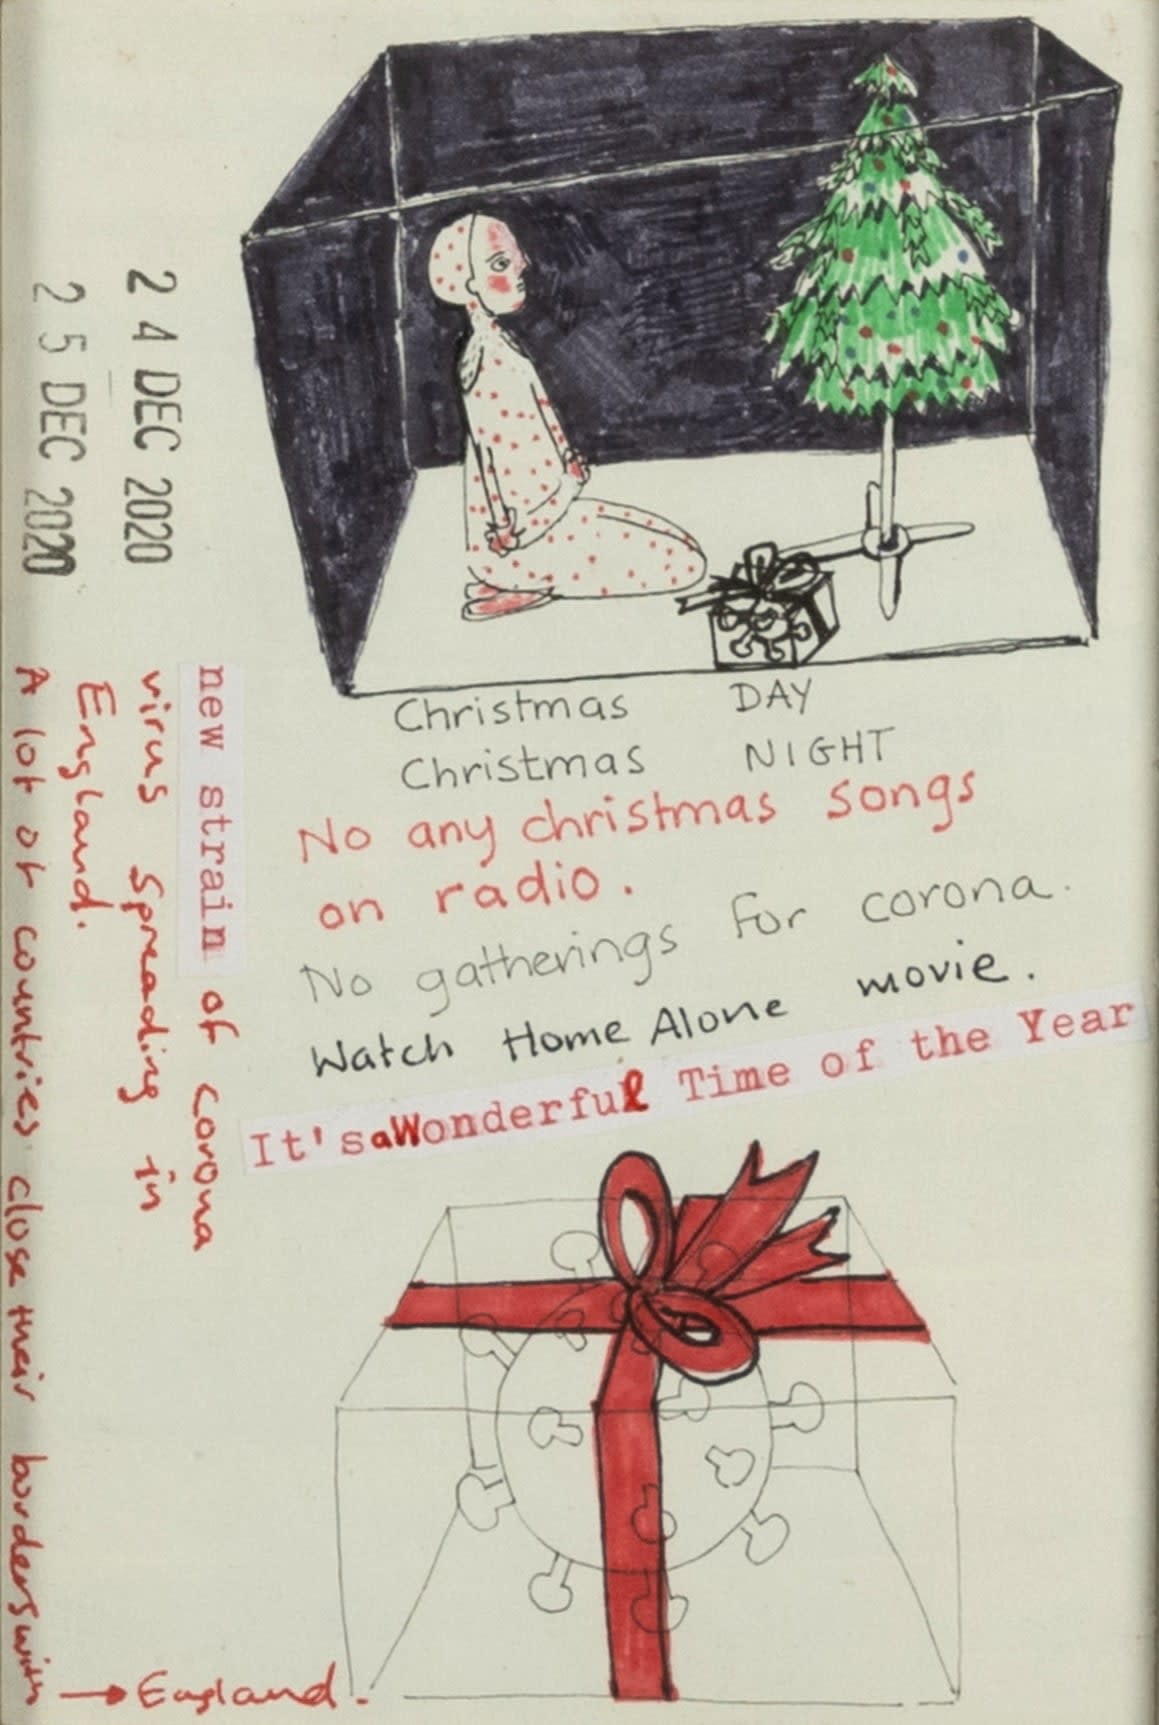 24 DEC 2020
25 DEC 2020
Christmas DAY
Christmas NIGHT
No any christmas songs
on radio.
No gatherings for corona.
Watch Home Alone movie.
It's a Wonderful Time of the Year
new strain of corona
virus spreading in
England.
A lot of countries close their borders with
→ England.